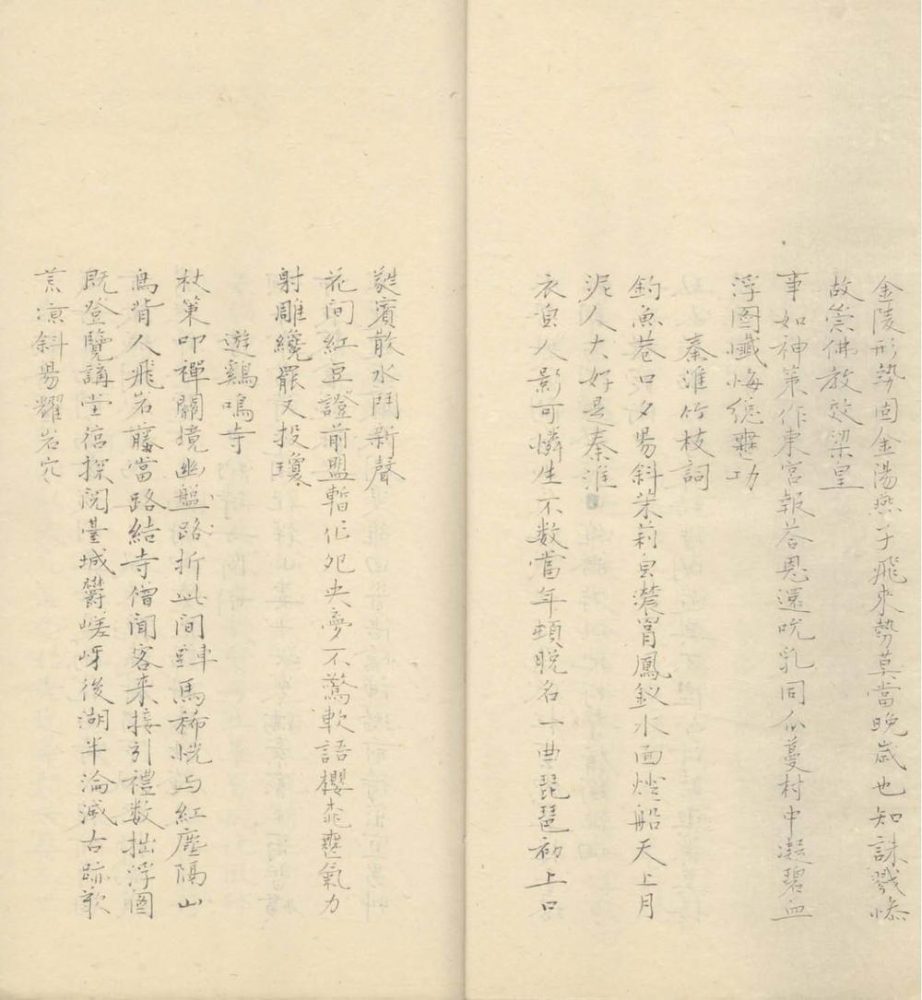 金陵形勢固金湯燕子飛來勢莫當晚歲也知誅戮慘
故崇佛教效梁皇
事如神策作東宮報答恩還吮乳同瓜蔓村中凝碧血
浮圖懺悔總無功
秦淮竹枝詞
釣魚巷口夕陽斜茉莉香濃宵鳳釵水面燈船天上月
泥人大好是秦淮
衣香人影可憐生不數當年頓脫名一曲琵琶初上口
䵻賓散水鬥新聲
花間紅豆證前盟暫作鴛央夢不驚軟語櫻桃無氣力
射雕纔罷又投瓊
遊鷄鳴寺
杖策叩禪關境幽盤路折此間車馬稀恍与紅塵隔山
鳥背人飛岩藤當路結寺僧聞客來接引禮数拙浮圖
既登覽講堂信探閱臺城鬱嵯岈後湖半淪滅古跡歎
荒凉斜易耀岩穴